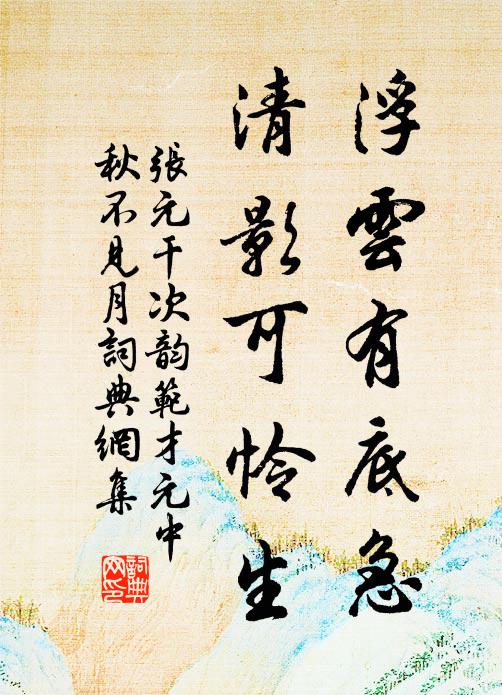 浮雲有底急
清影可怜生
張元干次韵範才元中
秋不見月詞典網集
詞典
网印